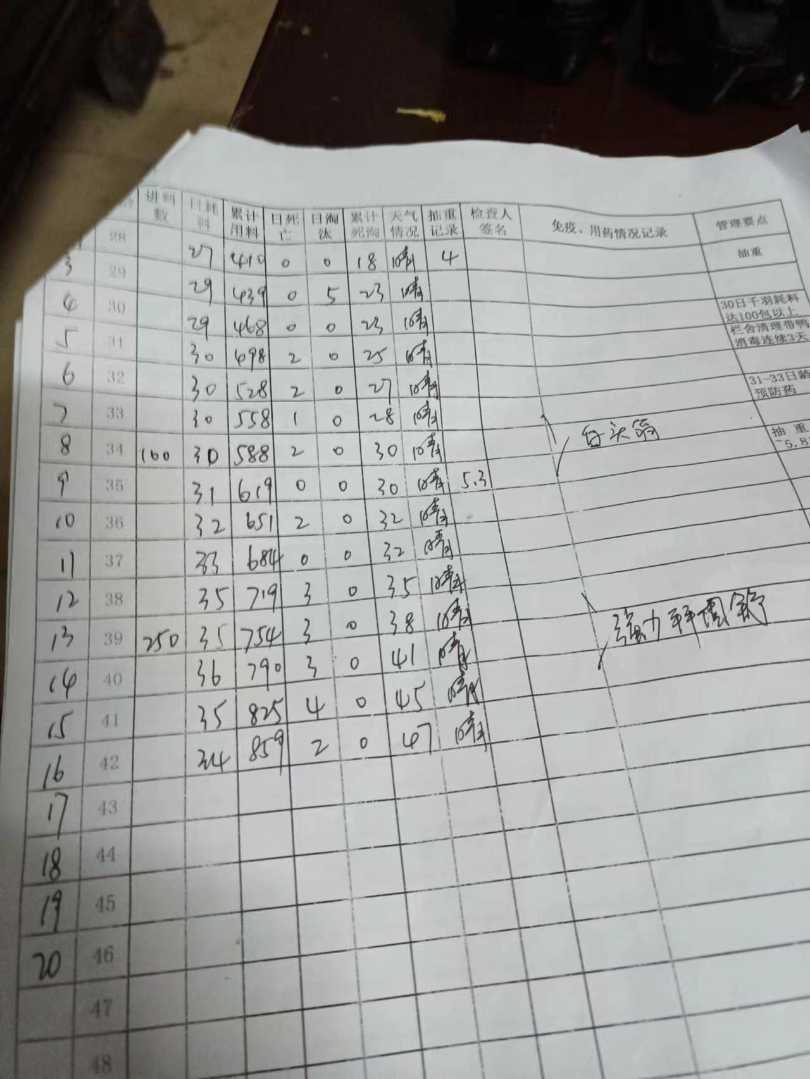 进料数 日耗料 累计用料 日死亡 日淘汰 累计死淘 天气情况 抽重记录 检查人签名 免疫、用药情况记录 管理要点
28 27 410 0 0 18 4 抽重
3 29 29 439 0 5 23
4 30 29 468 0 0 23 30日千羽耗料达100包以上
5 31 30 498 2 0 25 栏舍清理带鸭消毒连续3天
6 32 30 528 2 0 27
7 33 30 558 1 0 28 31-33日龄预防药
8 34 160 30 588 2 0 30 白头翁
9 35 31 619 0 0 30 5.3 抽重 5.8
10 36 32 651 2 0 32
11 37 33 684 0 0 32
12 38 35 719 3 0 35
13 39 250 35 754 3 0 38 强力
14 40 36 790 3 0 41
15 41 35 825 4 0 45
16 42 34 859 2 0 47
17 43
18 44
19 45
20 46
47
48